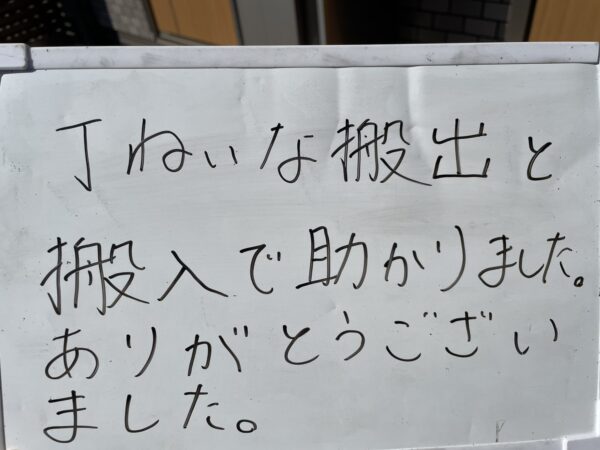 丁ねいな搬出と
搬入で助かりました。
ありがとうござい
ました。